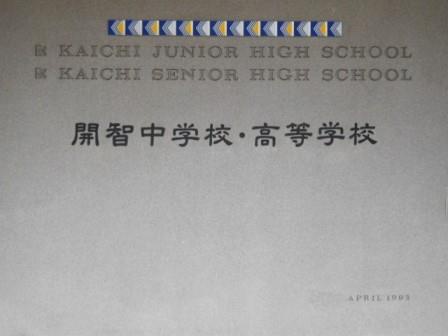 KAICHI JUNIOR HIGH SCHOOL
KAICHI SENIOR HIGH SCHOOL
開智中学校・高等学校
APRIL 1993